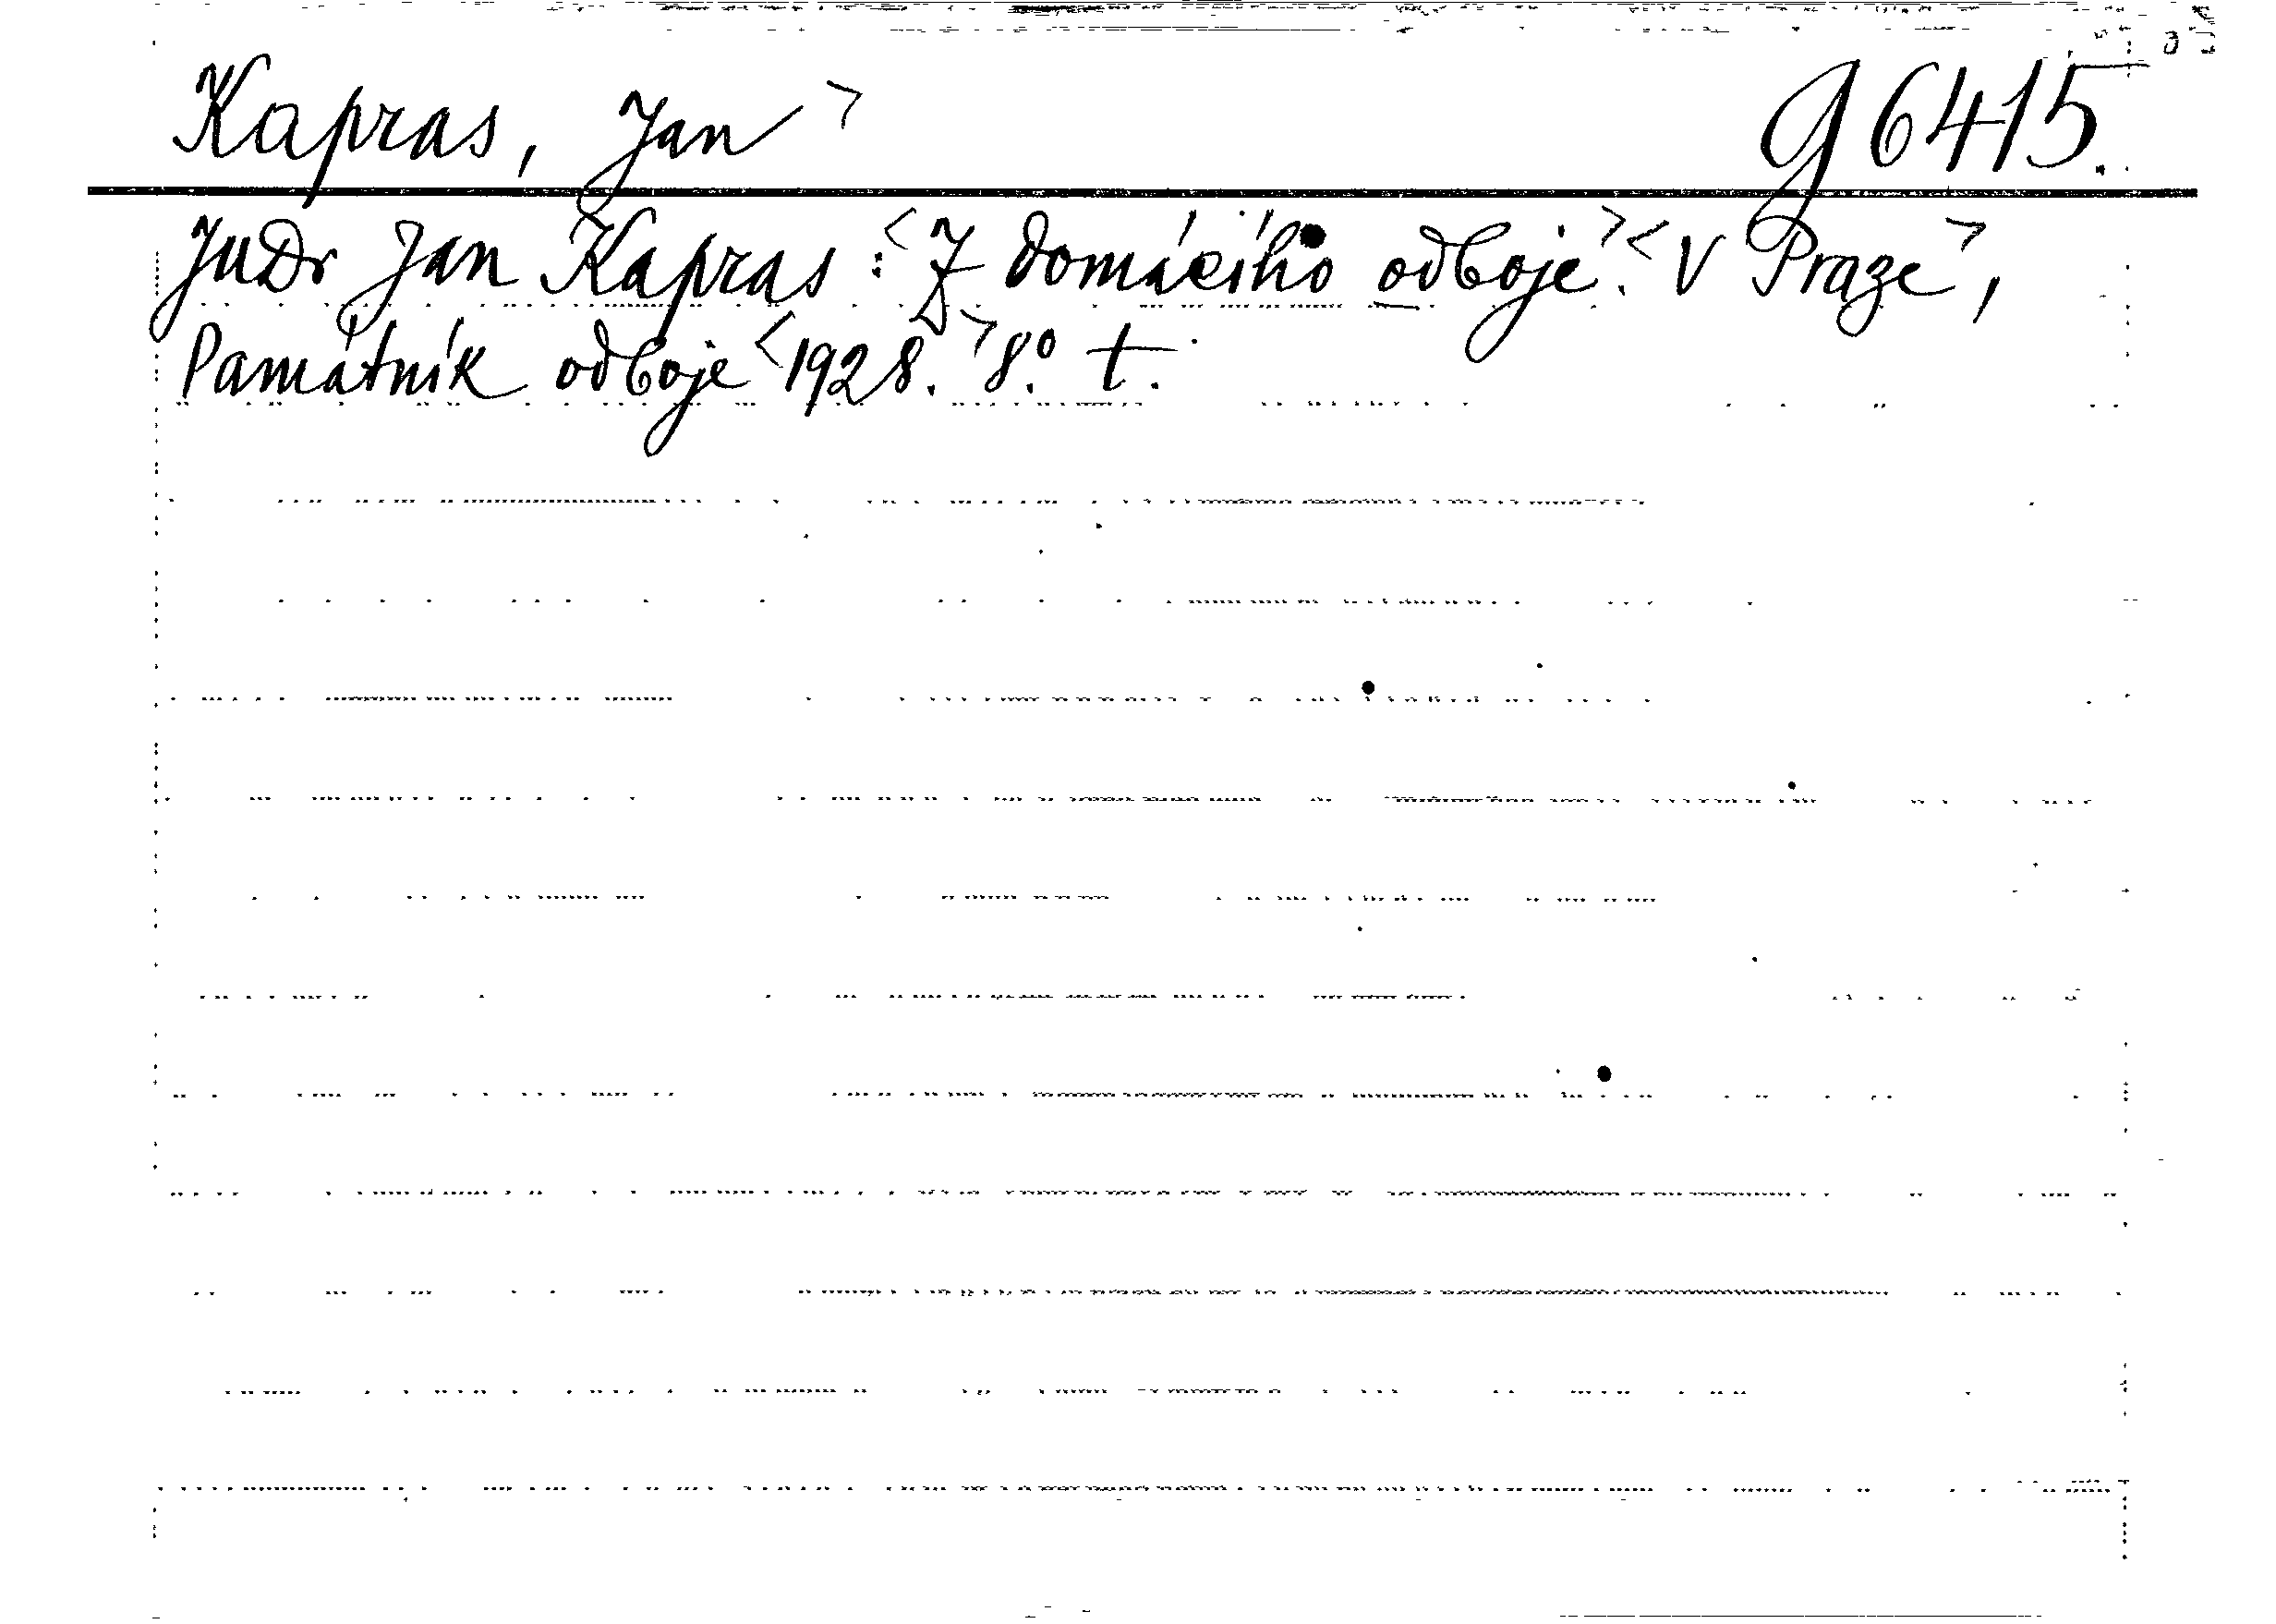 Kapras, Jan > g 6415.
JuDr Jan Kapras : < Z domácího odboje. > < V Praze >,
Památník odboje < 1928. > 8.° t.